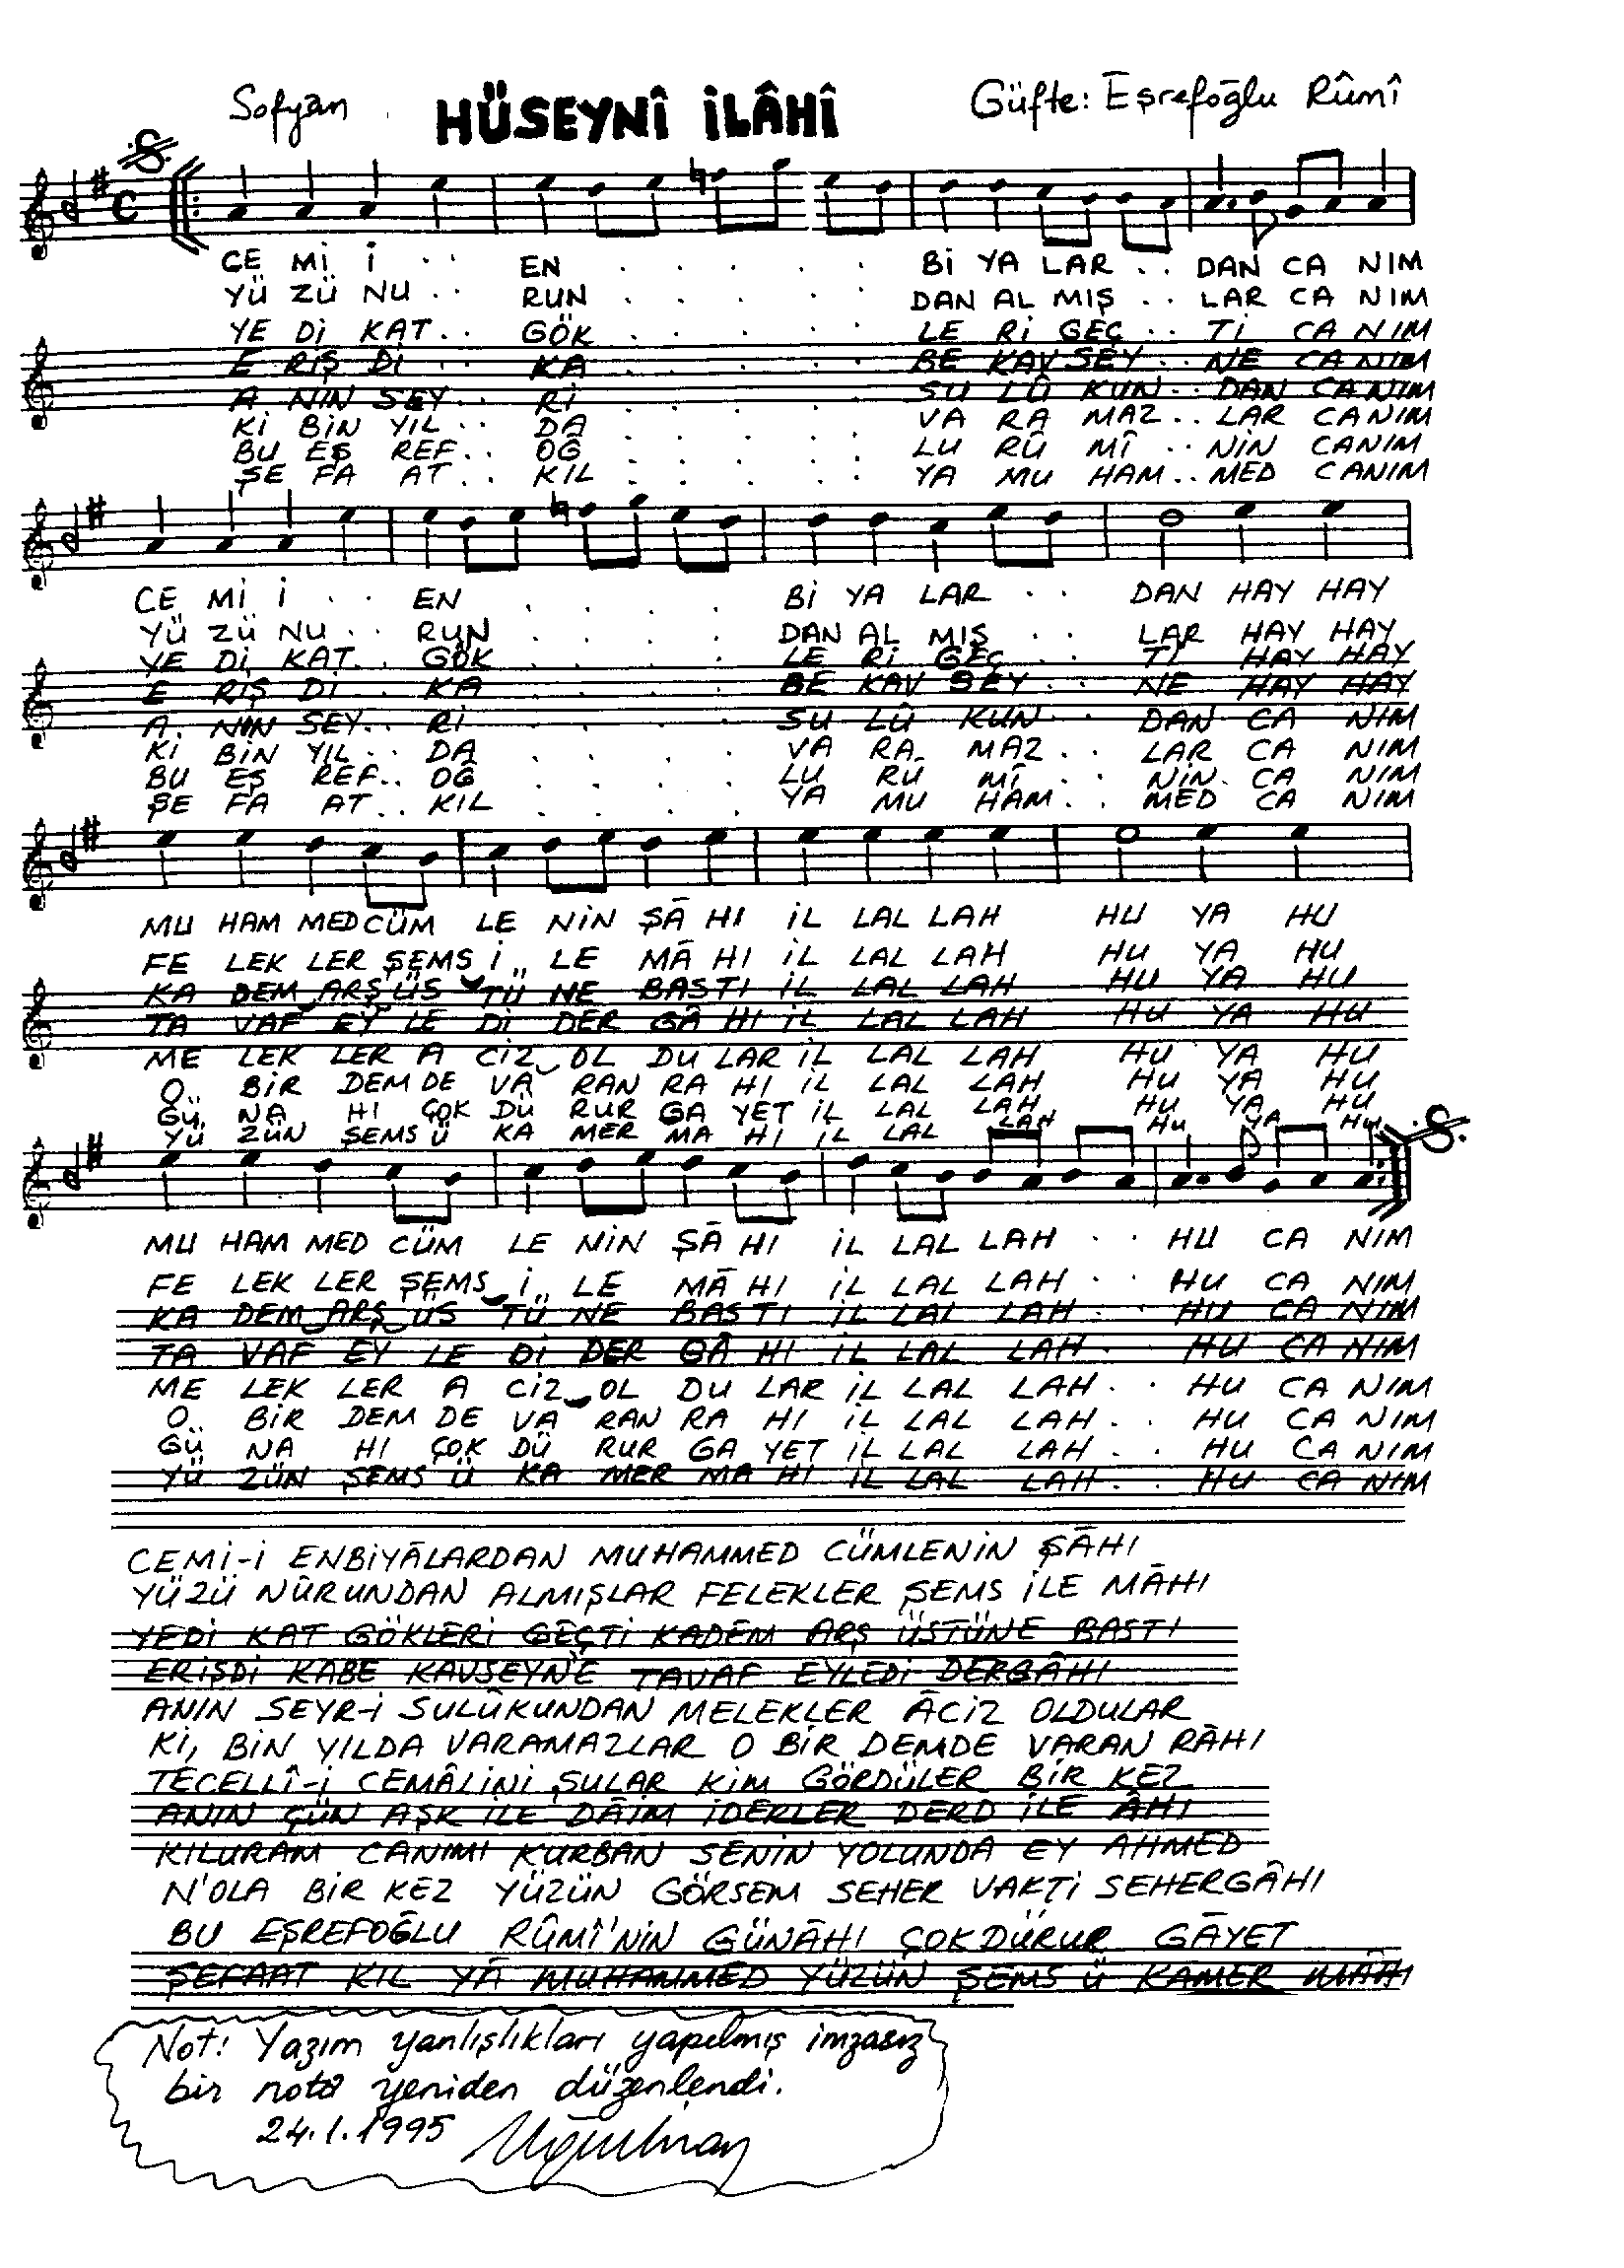 Sofyan HÜSEYNÎ İLÂHÎ Güfte: Eşrefoğlu Rûmî
CE Mİ İ . . EN . . . . . Bİ YA LAR . . DAN CA NIM
YÜ ZÜ NU . . RUN . . . . . DAN AL MIŞ . . LAR CA NIM
YE Dİ KAT . . GÖK . . . . . LE Rİ GEÇ . . Tİ CA NIM
E RİŞ Dİ . . KA . . . . . BE KAV SEY . . NE CA NIM
A NIN SEY . . Rİ . . . . . SU LÛ KUN . . DAN CA NIM
Kİ BİN YIL . . DA . . . . . VA RA MAZ . . LAR CANIM
BU EŞ REF . . OĞ . . . . . LU RÛ MÎ . . NİN CANIM
ŞE FA AT . . KIL . . . . . YA MU HAM . . MED CANIM
CE Mİ İ . . EN . . . . Bİ YA LAR . . DAN HAY HAY
YÜ ZÜ NU . . RUN . . . . DAN AL MIŞ . . LAR HAY HAY
YE Dİ KAT . . GÖK . . . . LE Rİ GEÇ . . Tİ HAY HAY
E RİŞ Dİ . . KA . . . . BE KAV SEY . . NE HAY HAY
A NIN SEY . . Rİ . . . . SU LÛ KUN . . DAN CA NIM
Kİ BİN YIL . . DA . . . . VA RA MAZ . . LAR CA NIM
BU EŞ REF . . OĞ . . . . LU RÛ MÎ . . NİN CA NIM
ŞE FA AT . . KIL . . . . YA MU HAM . . MED CA NIM
MU HAM MED CÜM LE NİN ŞÂ HI İL LAL LAH HU YA HU
FE LEK LER ŞEMS İ LE MÂ HI İL LAL LAH HU YA HU
KA DEM ARŞ ÜS TÜ NE BASTI İL LAL LAH HU YA HU
TA VAF EY LE Dİ DER GÂ HI İL LAL LAH HU YA HU
ME LEK LER A CİZ OL DU LAR İL LAL LAH HU YA HU
O BİR DEM DE VA RAN RA HI İL LAL LAH HU YA HU
GÜ NA HI ÇOK DÜ RUR GA YET İL LAL LAH HU YA HU
YÜ ZÜN ŞEMS Ü KA MER MA HI İL LAL LAH HU YA HU
MU HAM MED CÜM LE NİN ŞÂ HI İL LAL LAH . . HU CA NIM
FE LEK LER ŞEMS İ LE MÂ HI İL LAL LAH . . HU CA NIM
KA DEM ARŞ ÜS TÜ NE BASTI İL LAL LAH . . HU CA NIM
TA VAF EY LE Dİ DER GÂ HI İL LAL LAH . . HU CA NIM
ME LEK LER A CİZ OL DU LAR İL LAL LAH . . HU CA NIM
O BİR DEM DE VA RAN RA HI İL LAL LAH . . HU CA NIM
GÜ NA HI ÇOK DÜ RUR GA YET İL LAL LAH . . HU CA NIM
YÜ ZÜN ŞEMS Ü KA MER MA HI İL LAL LAH . . HU CA NIM
CEMİ-İ ENBİYÂLARDAN MUHAMMED CÜMLENİN ŞÂHI
YÜZÜ NÛRUNDAN ALMIŞLAR FELEKLER ŞEMS İLE MÂHI
YEDİ KAT GÖKLERİ GEÇTİ KADEM ARŞ ÜSTÜNE BASTI
ERİŞDİ KABE KAVSEYN'E TAVAF EYLEDİ DERGÂHI
ANIN SEYR-İ SULÛKUNDAN MELEKLER ÂCİZ OLDULAR
Kİ, BİN YILDA VARAMAZLAR O BİR DEMDE VARAN RÂHI
TECELLÎ-İ CEMÂLİNİ ŞULAR KİM GÖRDÜLER BİR KEZ
ANIN ÇÜN AŞK İLE DÂİM İDERLER DERD İLE ÂHI
KILURAM CANIMI KURBAN SENİN YOLUNDA EY AHMED
N'OLA BİR KEZ YÜZÜN GÖRSEM SEHER VAKTİ SEHERGÂHI
BU EŞREFOĞLU RÛMÎ'NİN GÜNÂHI ÇOKDÜRUR GÂYET
ŞEFAAT KIL YÂ MUHAMMED YÜZÜN ŞEMS Ü KAMER MÂHI
Not: Yazım yanlışlıkları yapılmış imzasız
bir nota yeniden düzenlendi.
24.1.1995